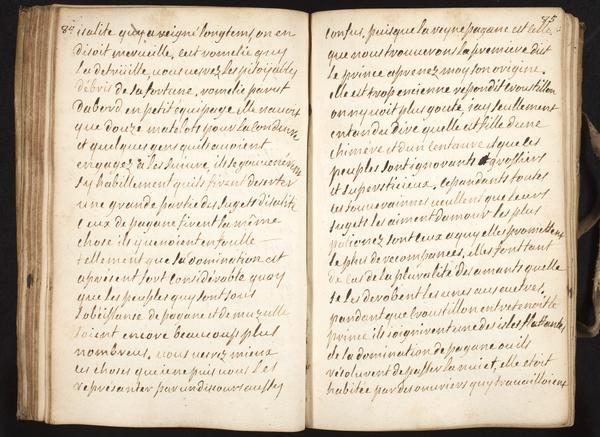 84
isalite quy a reigné longtems on en
disoit merveille, cest romelie quy
la detruitte, vous verrez les pitoyables
débris de sa fortune, romelie parut
dabord en petit equipage elle navoit
que douze matelots pour la conduire
et quelques gens quils avoient
engagez à les suivre, ils se gouvernerent
sy habillement quils firent deserter
une grande partie des sujets disalite
ceux de pagane firent la même
chose ils y venoient en foulle
tellement que sa domination est
apresent fort considérable quoy
que les peuples quy sont sous
lobeissanse de pagane et de muzulle
soient encore beaucoup plus
nombreux. vous verrez mieux
ces choses que je ne puis vous les
représenter par un discours aussy
85
confus, puisque la reyne pagane est celle
que nous trouverons la premiere dit
le prince aprenez moy son origine.
elle est trop encienne repondit croustillon
on ny voit plus goute, jay seullement
entendu dire quelle est fille dune
chimere et dun centaure et que ces
peuples sont ignorants et grossiers
et superstitieux, cependants toutes
ces souverainnes veullent que leurs
sujets les aiment damour les plus
pationez sont ceux a quy elles promettent
le plus de recompances, elles font tant
de cas de la pluralité des amants quelle
se les derobent les unes aus autres.
pandant que croustillon entretenoit le
prince ils joignirent une des isles flottantes,
de la domination de pagane ou ils
resolurent de passer la nuict, elle etoit
habitée par des ouvriers quy travailloient